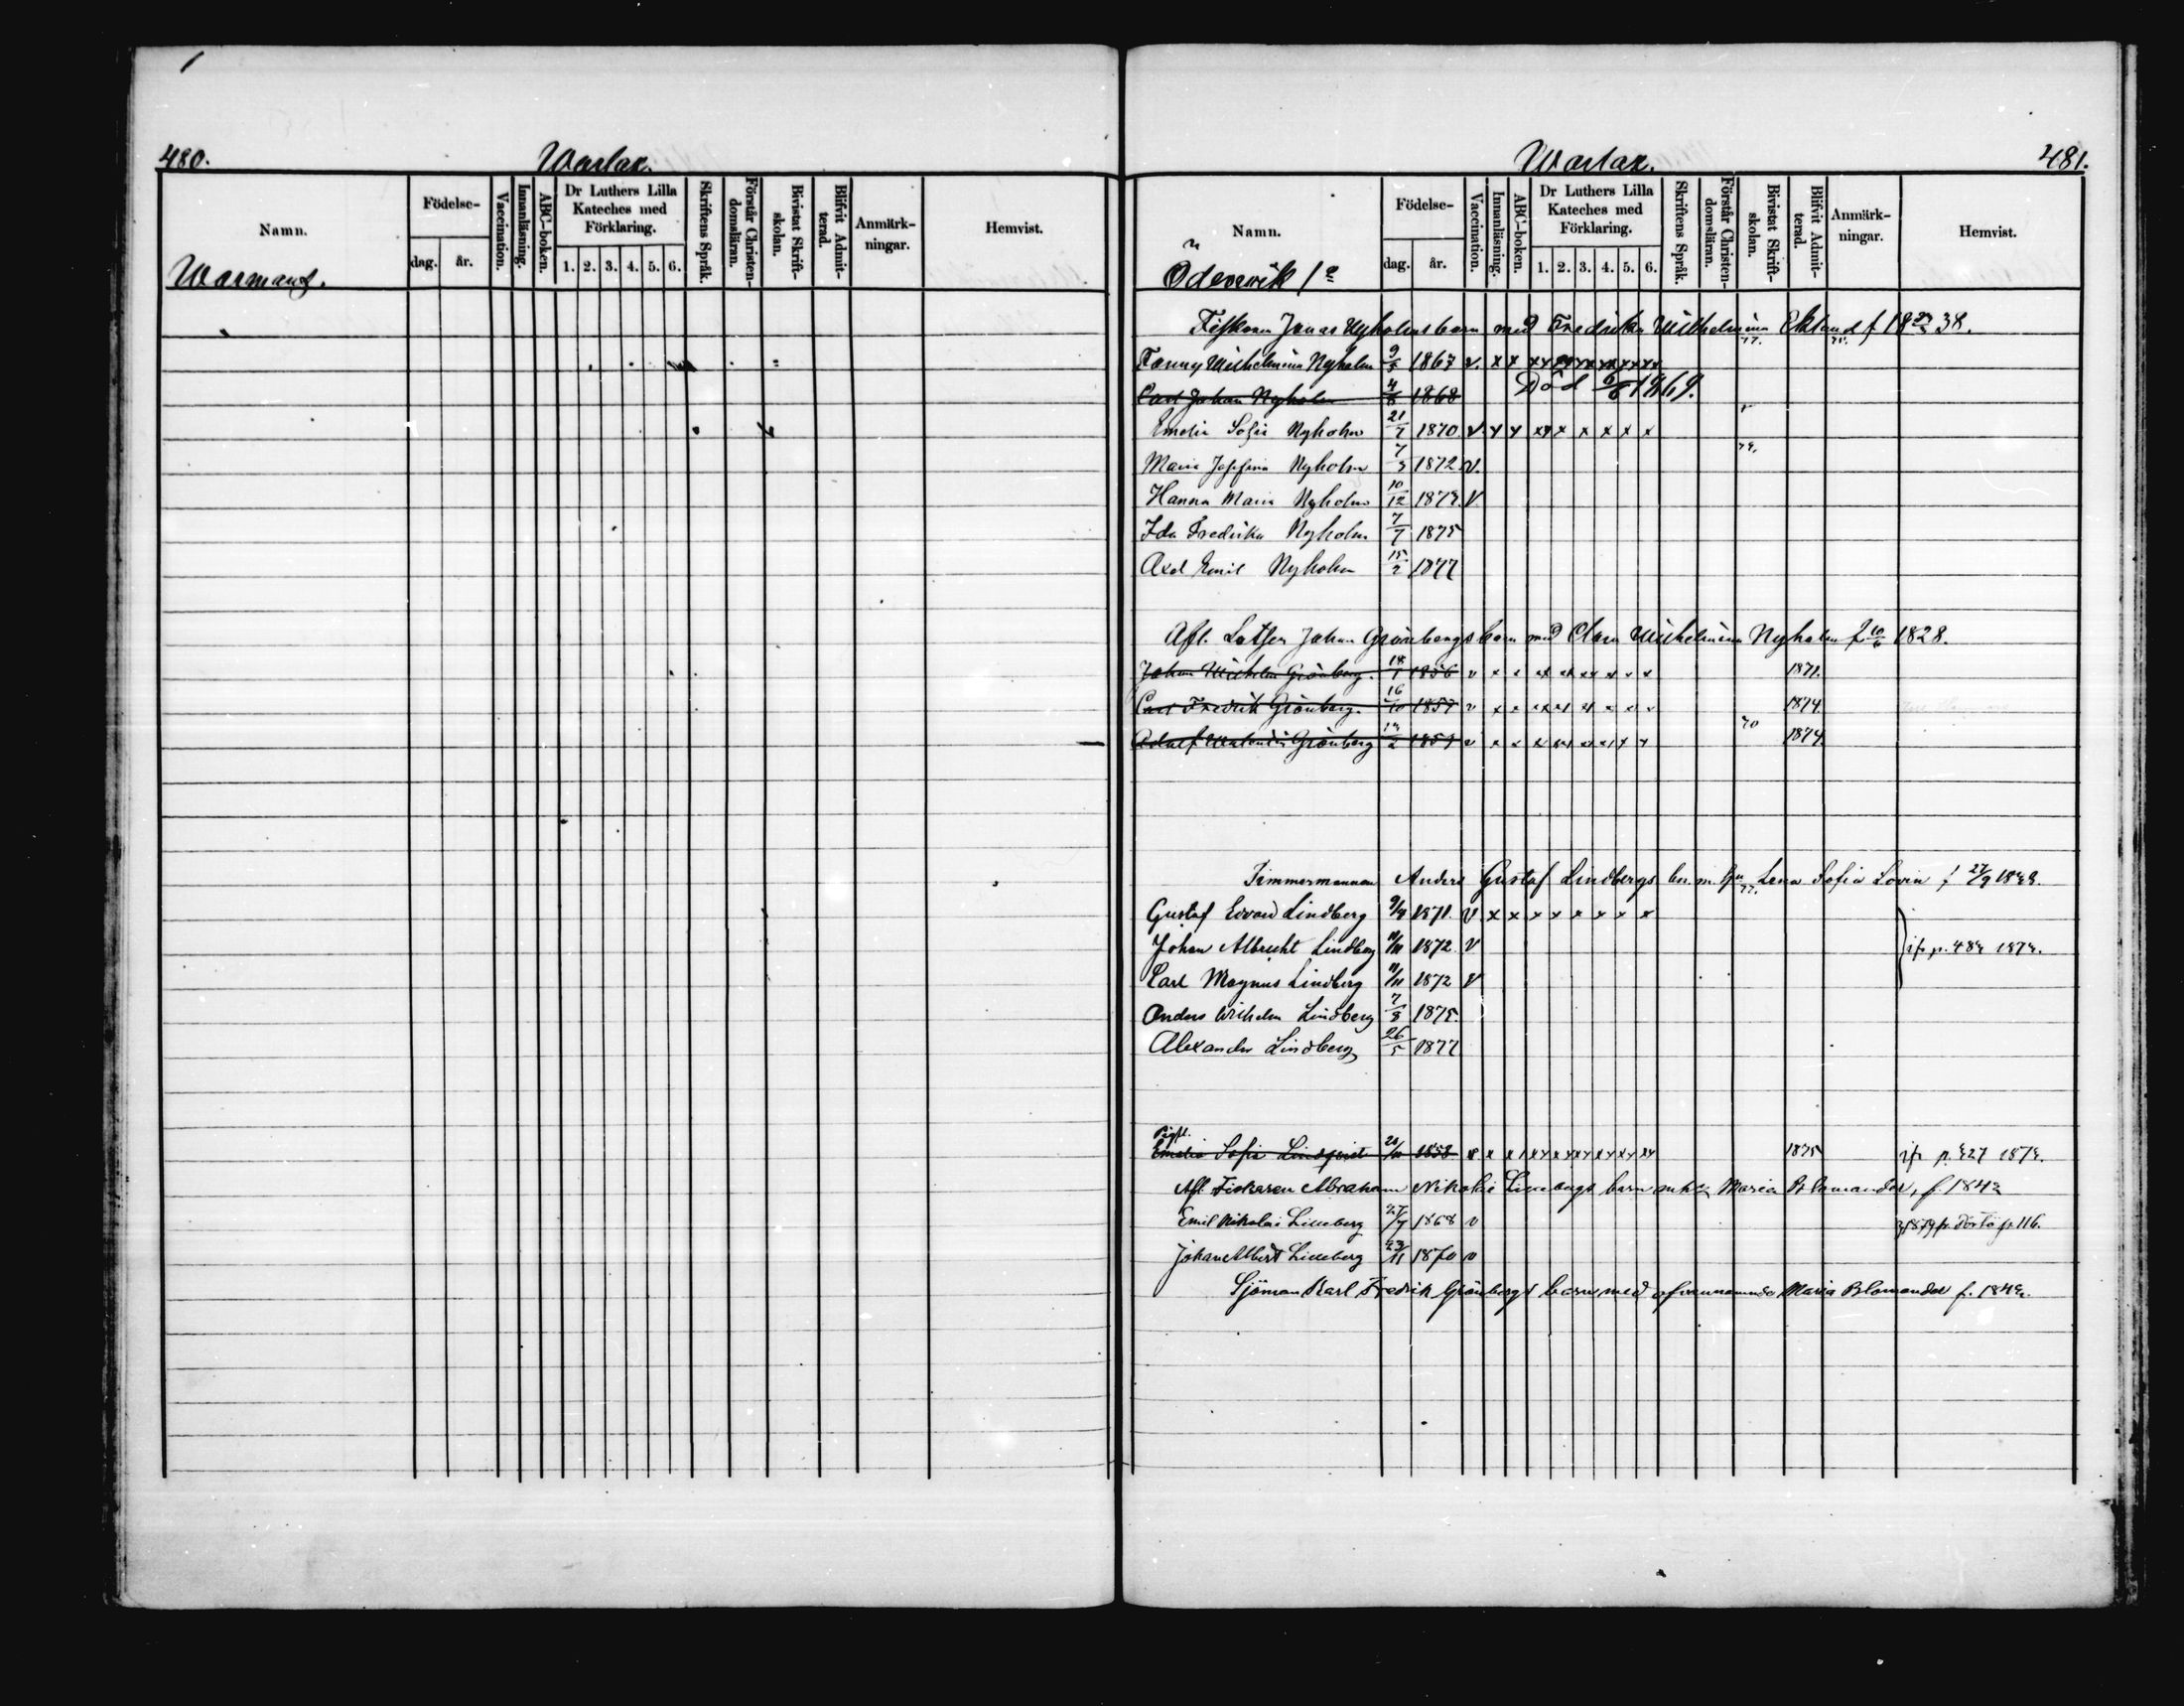 480.
Warlax.
Namn.
Födelse-
dag. år.
Vaccination.
Innanläsning.
ABC-boken.
Dr Luthers Lilla
Kateches med
Förklaring.
1. 2. 3. 4. 5. 6.
Skriftens Språk.
Förstår Christen-
domsläran.
Bivistat Skrift-
skolan.
Blifvit Admit-
terad.
Anmärk-
ningar.
Hemvist.
Warmans.
Warlax.
481.
Namn.
Födelse-
dag. år.
Vaccination.
Innanläsning.
ABC-boken.
Dr Luthers Lilla
Kateches med
Förklaring.
1. 2. 3. 4. 5. 6.
Skriftens Språk.
Förstår Christen-
domsläran.
Bivistat Skrift-
skolan.
Blifvit Admit-
terad.
Anmärk-
ningar.
Hemvist.
Ödeswik
Fiskaren Jonas Nyholms barn med Fredrika Wilhelmina Eklund f 38.
Fanny Wilhelmina Nyholm 9/5 1867 v. x x
Carl Johan Nyholm 4/8 1868 Död 1869.
Emelie Sofia Nyholm 21/7 1870 v x x x x x x x x
Maria Josefina Nyholm 7/3 1872 v.
Hanna Maria Nyholm 10/12 1873 v
Ida Fredrika Nyholm 7/7 1875
Axel Emil Nyholm 15/2 1877
Afl. Lotsen Johan Grönbergs barn med Clara Wilhelmina Nyholm f 1828.
Johan Wilhelm Grönberg. 18/1 1856 v x x 1871.
Carl Fredrik Grönberg. 16/10 1857 v x x 1874
Adolf Grönberg 13/2 1859 v x x 1874
Timmermannen Anders Gustaf Lindbergs bn. m. Lena Sofia Lovin f
Gustaf Edvard Lindberg 9/4 1871. v x x x x x x x x
Johan Albrecht Lindberg 11/11 1872 v p. 483 1873.
Carl Magnus Lindberg 11/11 1872 v
Anders Wilhelm Lindberg 7/8 1875.
Alexander Lindberg 26/5 1877
Emelie Sofia Lindqvist 1858 x x 1875 p. 327 1873.
Afl Fiskaren Abraham Nikolai Lillebergs barn Maria Blomander, f. 1843
Emil Nikolai Lilleberg 27/7 1868 v p. 116.
Johan Albert Lilleberg 23/11 1870 v
Sjöman Karl Fredrik Grönbergs barn med ofvannämnda Maria Blomander f. 1843.